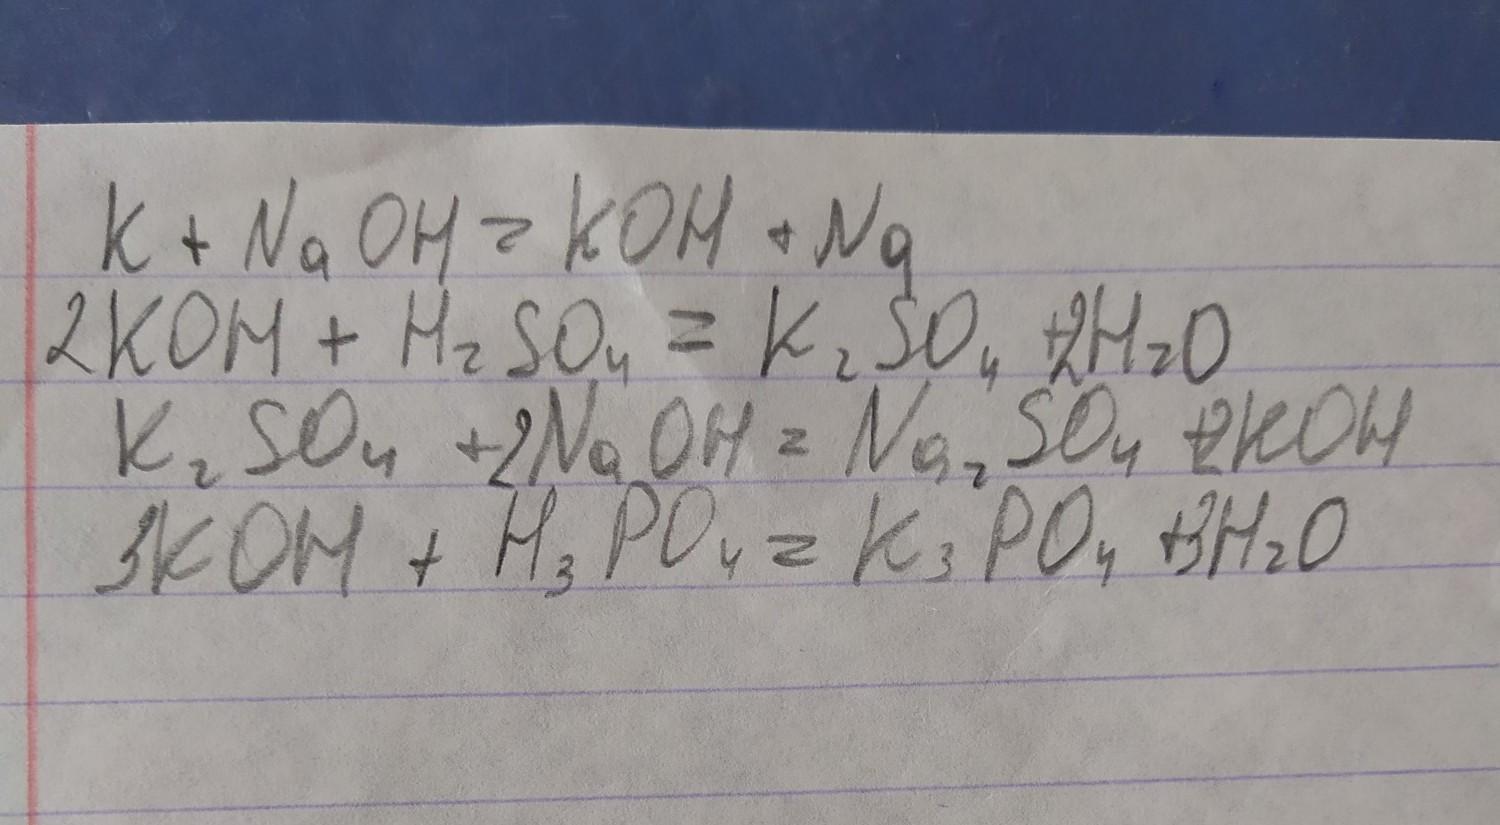 K + NaOH = KOH + Na
2KOH + H₂SO₄ = K₂SO₄ + 2H₂O
K₂SO₄ + 2NaOH = Na₂SO₄ + 2KOH
3KOH + H₃PO₄ = K₃PO₄ + 3H₂O